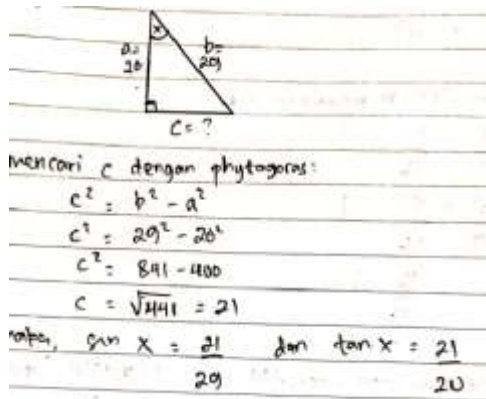 a=
20
x
b=
29
c = ?
mencari c dengan phytagoras:
c² = b² - a²
c² = 29² - 20²
c² = 841 - 400
c = √441 = 21
maka, sin x = 21/29 dan tan x = 21/20